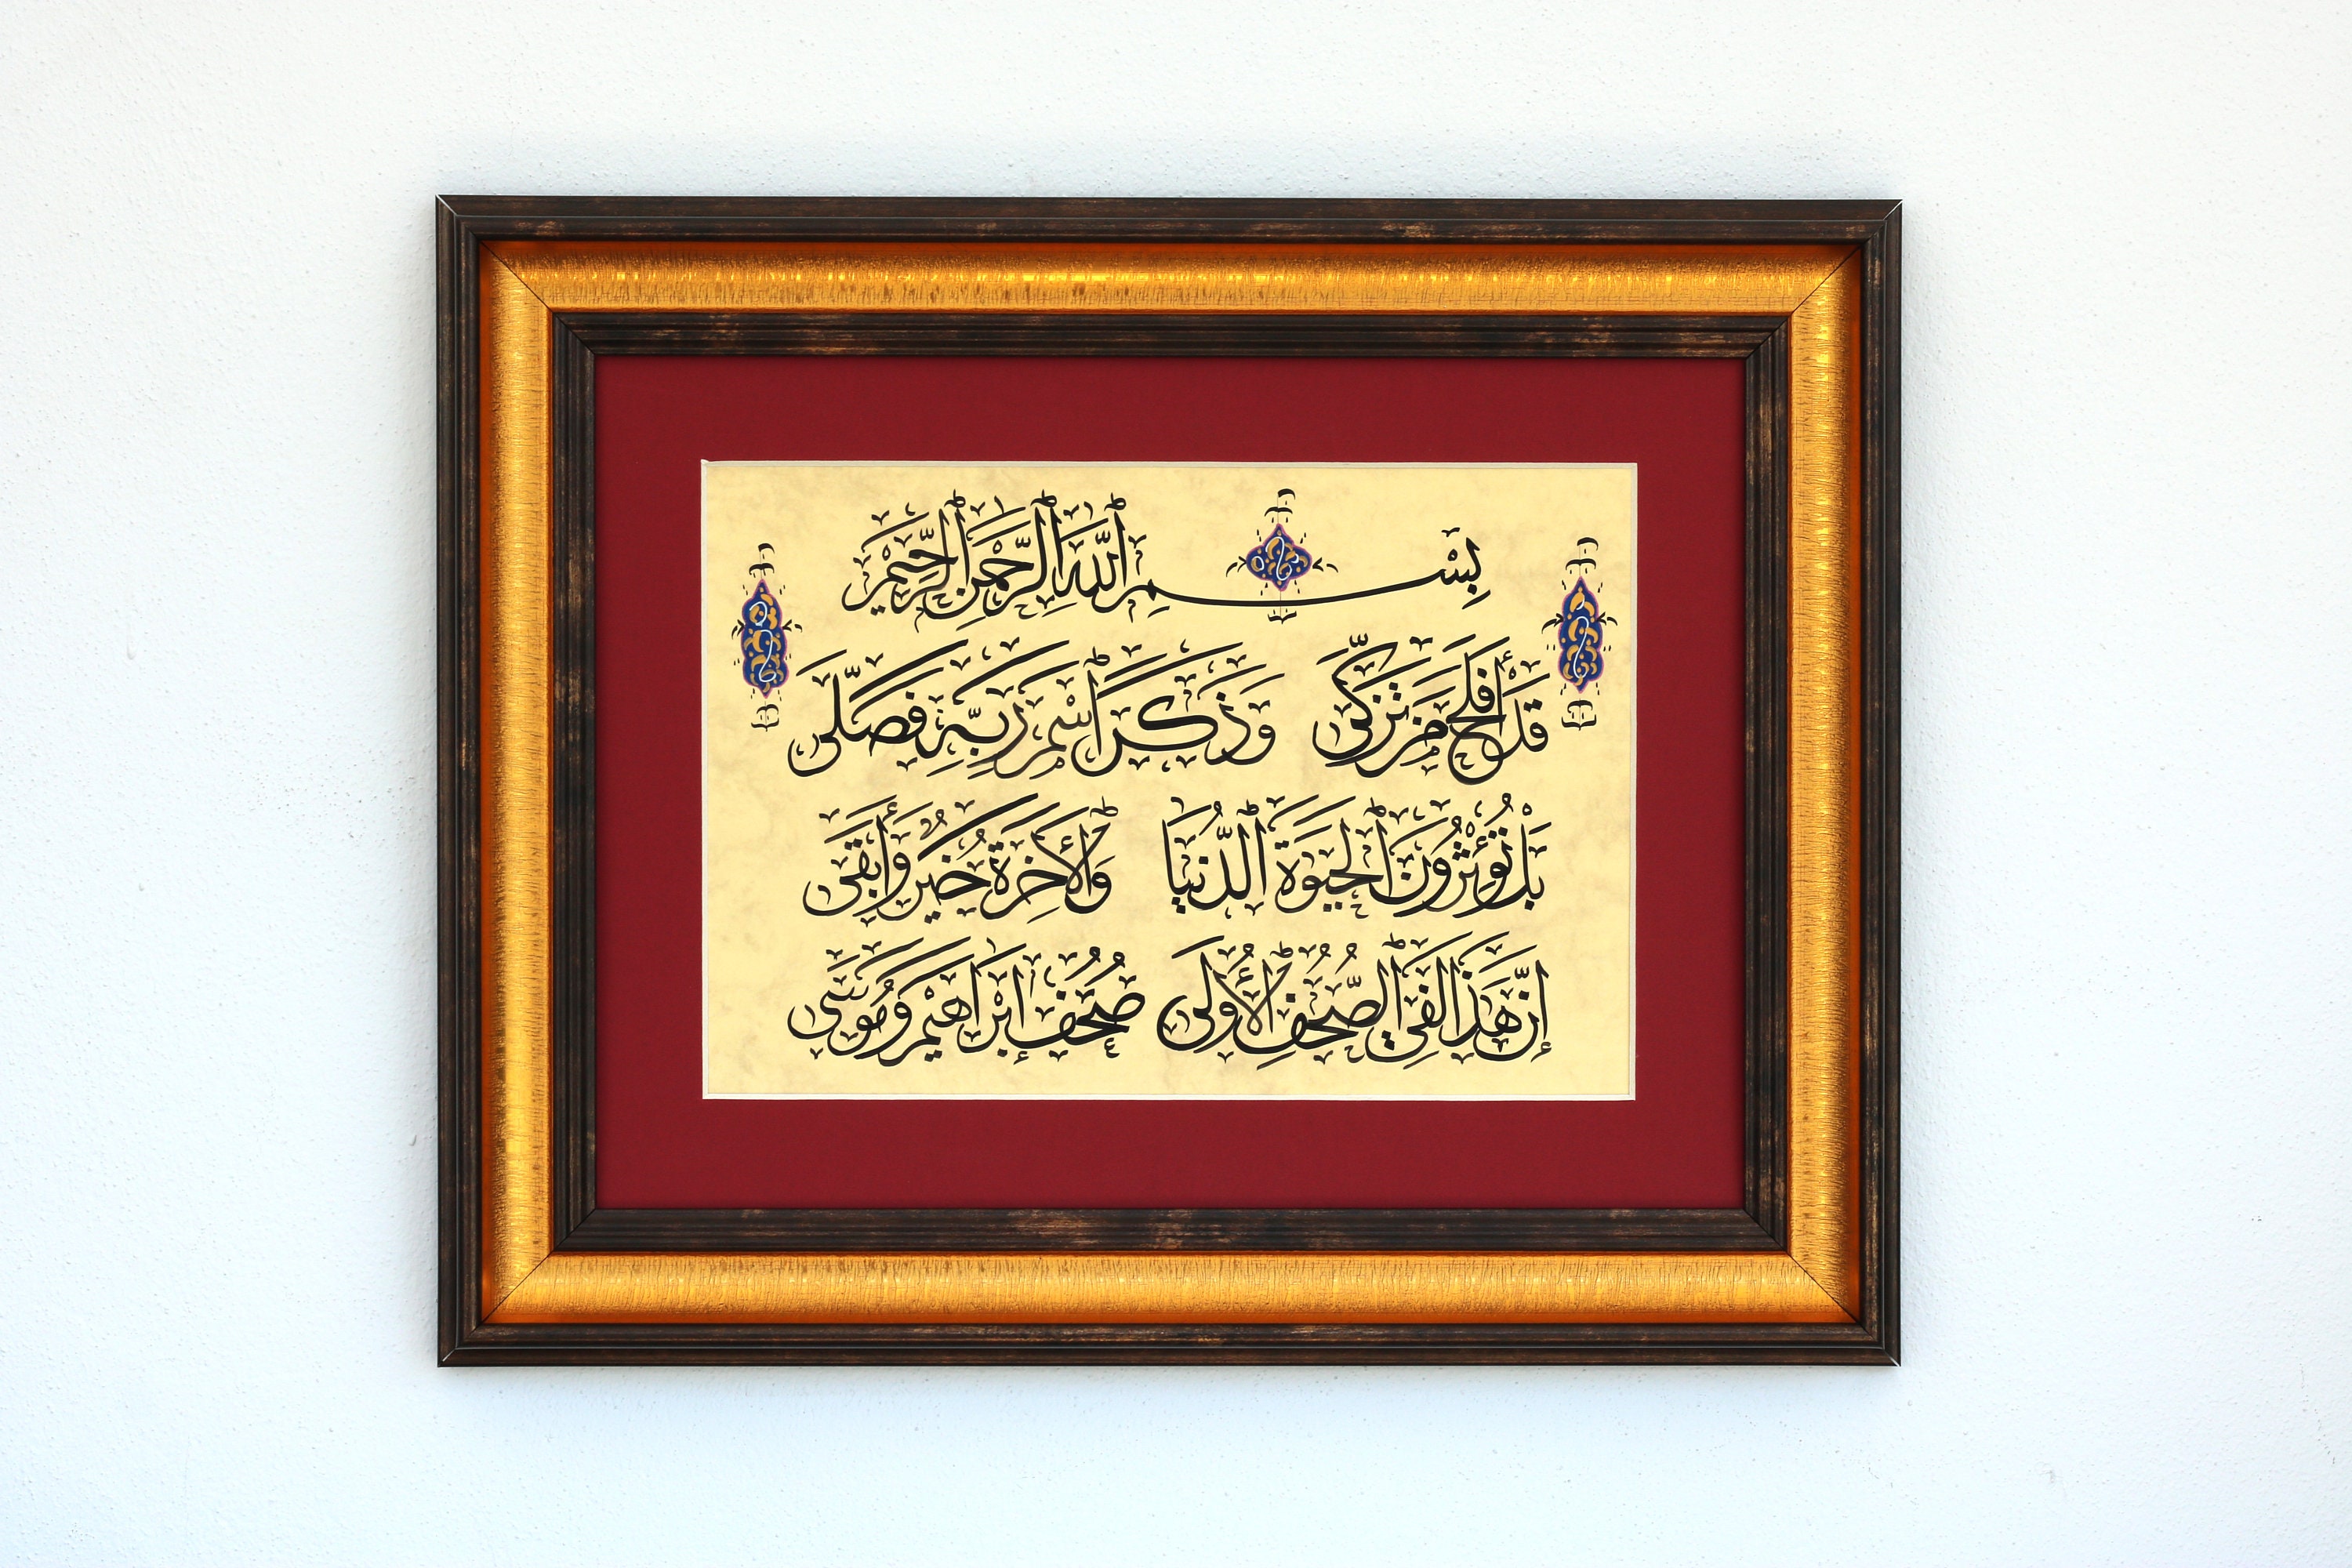 بِسْمِ ٱللَّهِ ٱلرَّحْمٰنِ ٱلرَّحِيمِ
قَدْ أَفْلَحَ مَن تَزَكَّىٰ وَذَكَرَ ٱسْمَ رَبِّهِ فَصَلَّىٰ
بَلْ تُؤْثِرُونَ ٱلْحَيَوٰةَ ٱلدُّنْيَا وَٱلْأَخِرَةُ خَيْرٌ وَأَبْقَىٰ
إِنَّ هَٰذَا لَفِي ٱلصُّحُفِ ٱلْأُولَىٰ صُحُفِ إِبْرَاهِيمَ وَمُوسَىٰ